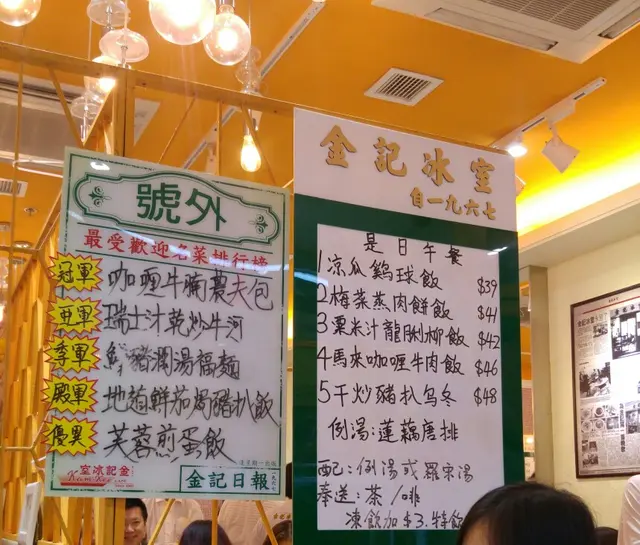 號外
最受歡迎名菜排行榜
冠軍 咖喱牛腩農夫包
亞軍 瑞士汁乾炒牛河
季軍 鮮豬潤湯福麵
殿軍 地道鮮茄焗豬扒飯
優異 芙蓉煎蛋飯
室冰記金
金記日報
金記冰室
自一九六七
是日午餐
1 凉瓜鷄球飯 $39
2 梅菜蒸肉餅飯 $41
3 粟米汁龍脷柳飯 $42
4 馬來咖喱牛肉飯 $46
5 干炒豬扒乌冬 $48
例湯:蓮藕唐排
配:例湯或羅宋湯
奉送:茶/啡
凍飲加$3.特飲